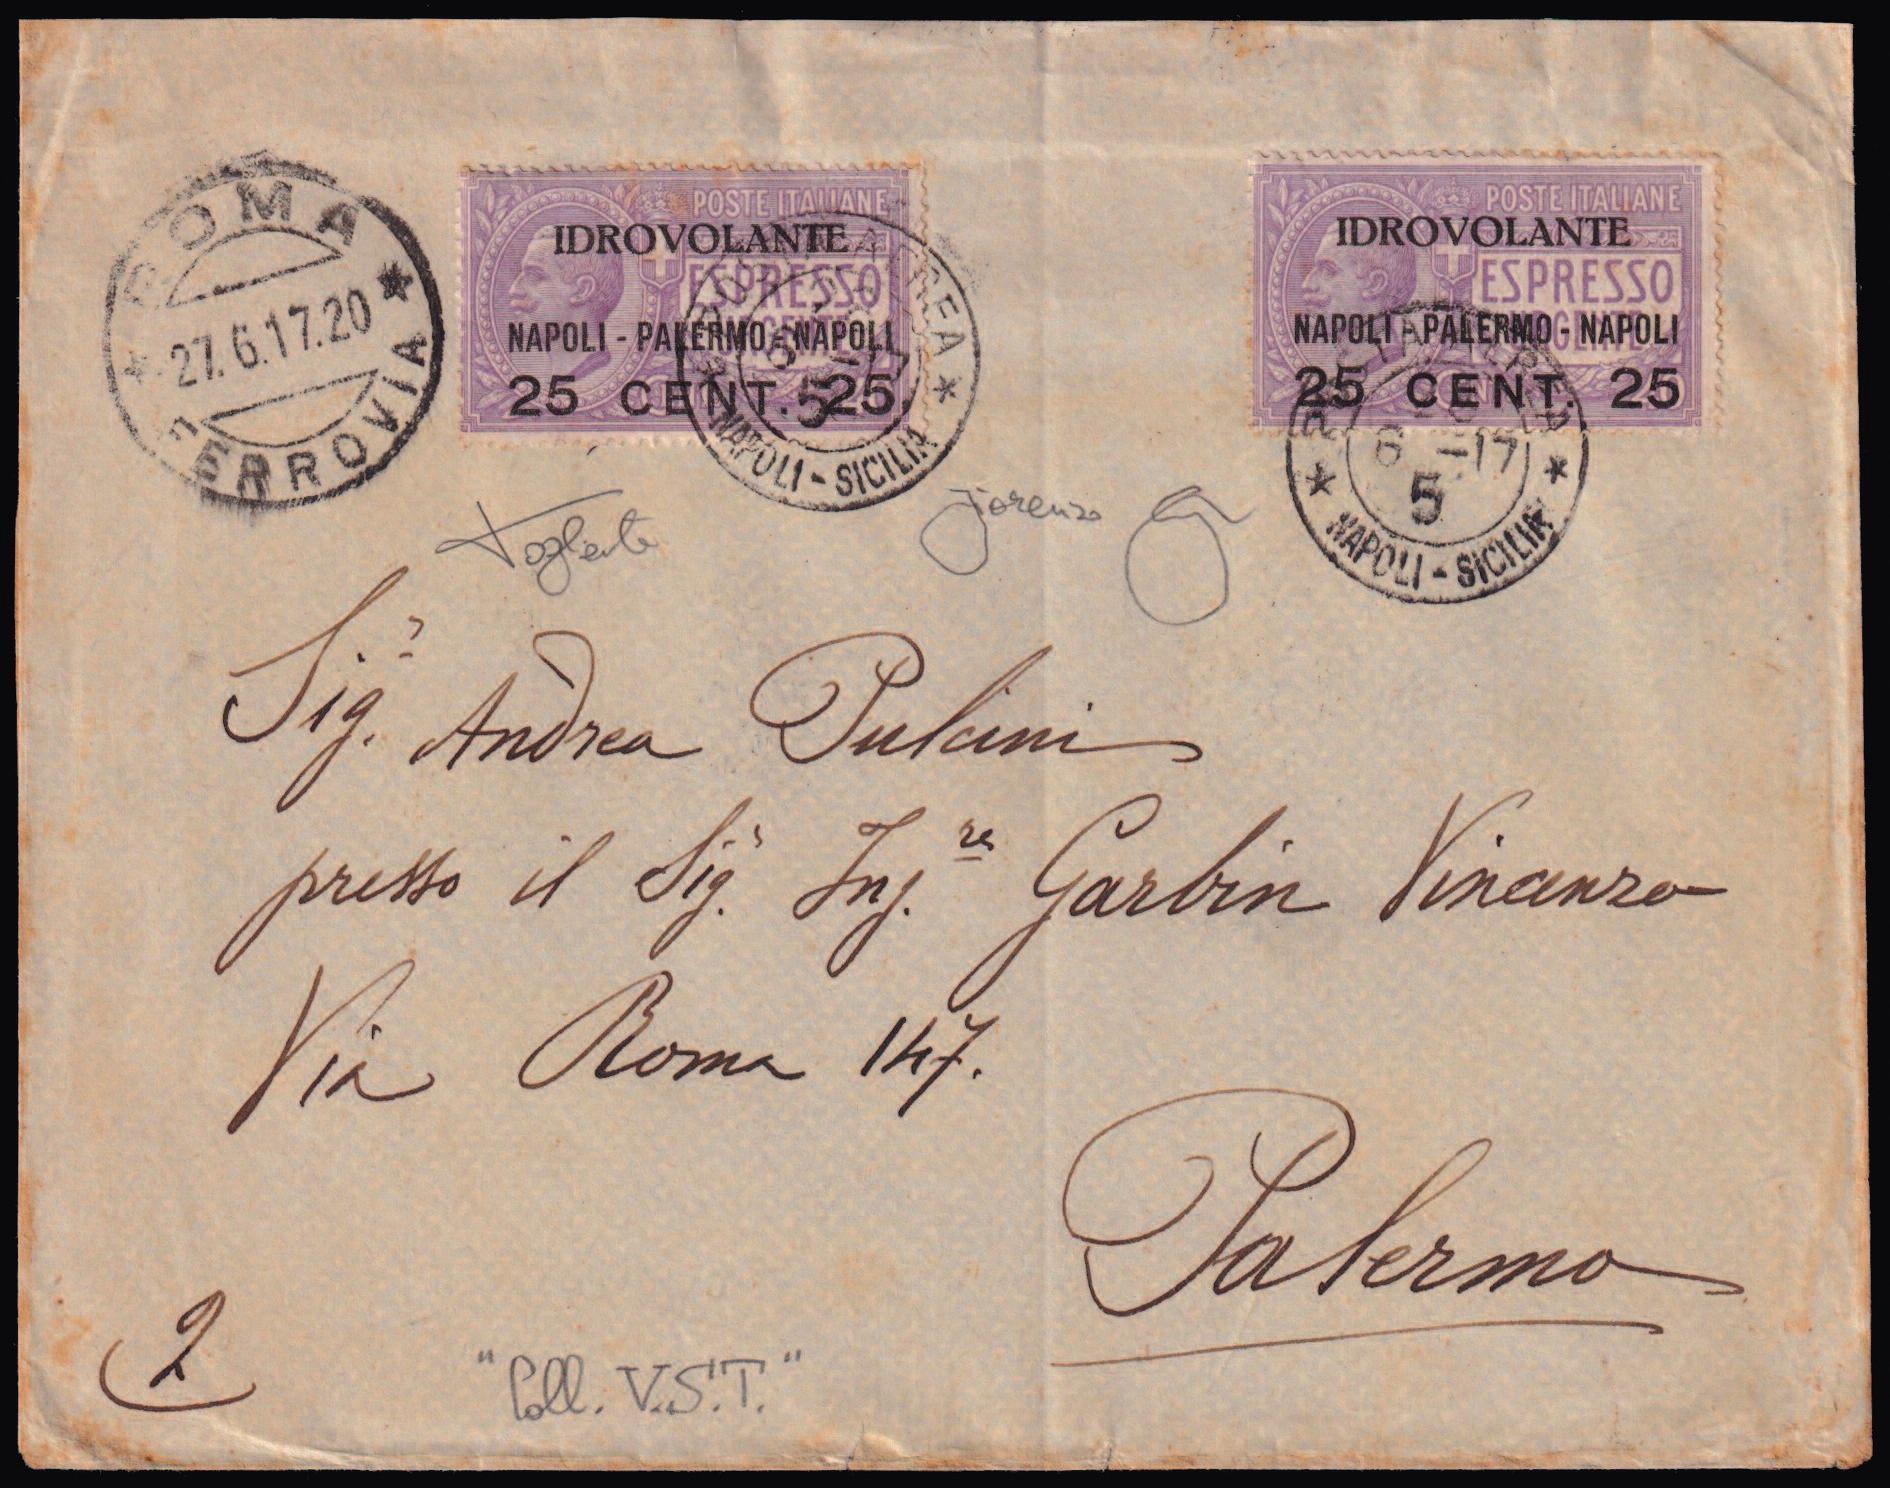 ROMA
27.6.17.20
FERROVIA
POSTE ITALIANE
IDROVOLANTE
ESPRESSO
NAPOLI - PALERMO - NAPOLI
25 CENT. 25
POSTA AEREA
5
NAPOLI - SICILIA
POSTE ITALIANE
IDROVOLANTE
ESPRESSO
NAPOLI - PALERMO - NAPOLI
25 CENT. 25
POSTA AEREA
6 -17
5
NAPOLI - SICILIA
Sigr. Andrea Pulcini
presso il Sigr. Ing.re Garbin Vincenzo
Via Roma 147.
Palermo
2
"Coll. V.S.T."